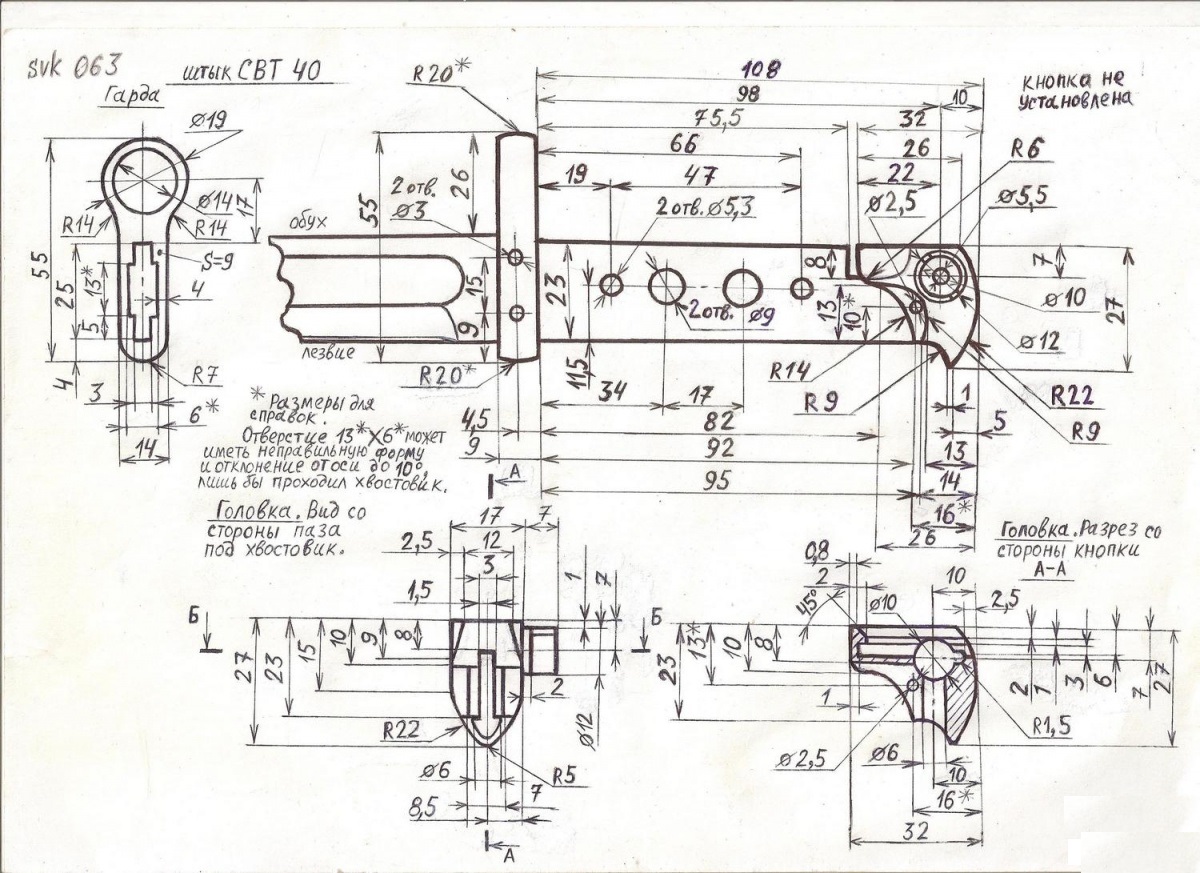 svk 063
штык СВТ 40
Гарда
Ø19
Ø14
17
R14
R14
55
25
13*
5
4
S=9
4
3
6*
14
R7
R20*
108
98
10
75,5
32
66
26
19
47
22
кнопка не
установлена
R6
2 отв.
Ø3
2 отв. Ø5,3
Ø2,5
Ø5,5
55
26
обух
15
9
23
8
13
10*
7
27
2 отв. Ø9
Ø10
Ø12
лезвие
R20*
11,5
R14
R9
R22
R9
34
17
1
5
4,5
82
9
92
13
95
14
16*
26
А
* Размеры для
справок.
Отверстие 13*Х6* может
иметь неправильную форму
и отклонение от оси до 10°,
лишь бы проходил хвостовик.
Головка. Вид со
стороны паза
под хвостовик.
17
7
2,5
12
3
1,5
1
7
Б
Б
27
23
15
10
9
8
2
Ø12
R22
R5
Ø6
7
8,5
А
Головка. Разрез со
стороны кнопки
А-А
0,8
2
10
45°
Ø10
2,5
23
13*
10
8
1
2
1
3
6
7
27
R1,5
Ø2,5
Ø6
10
16*
32